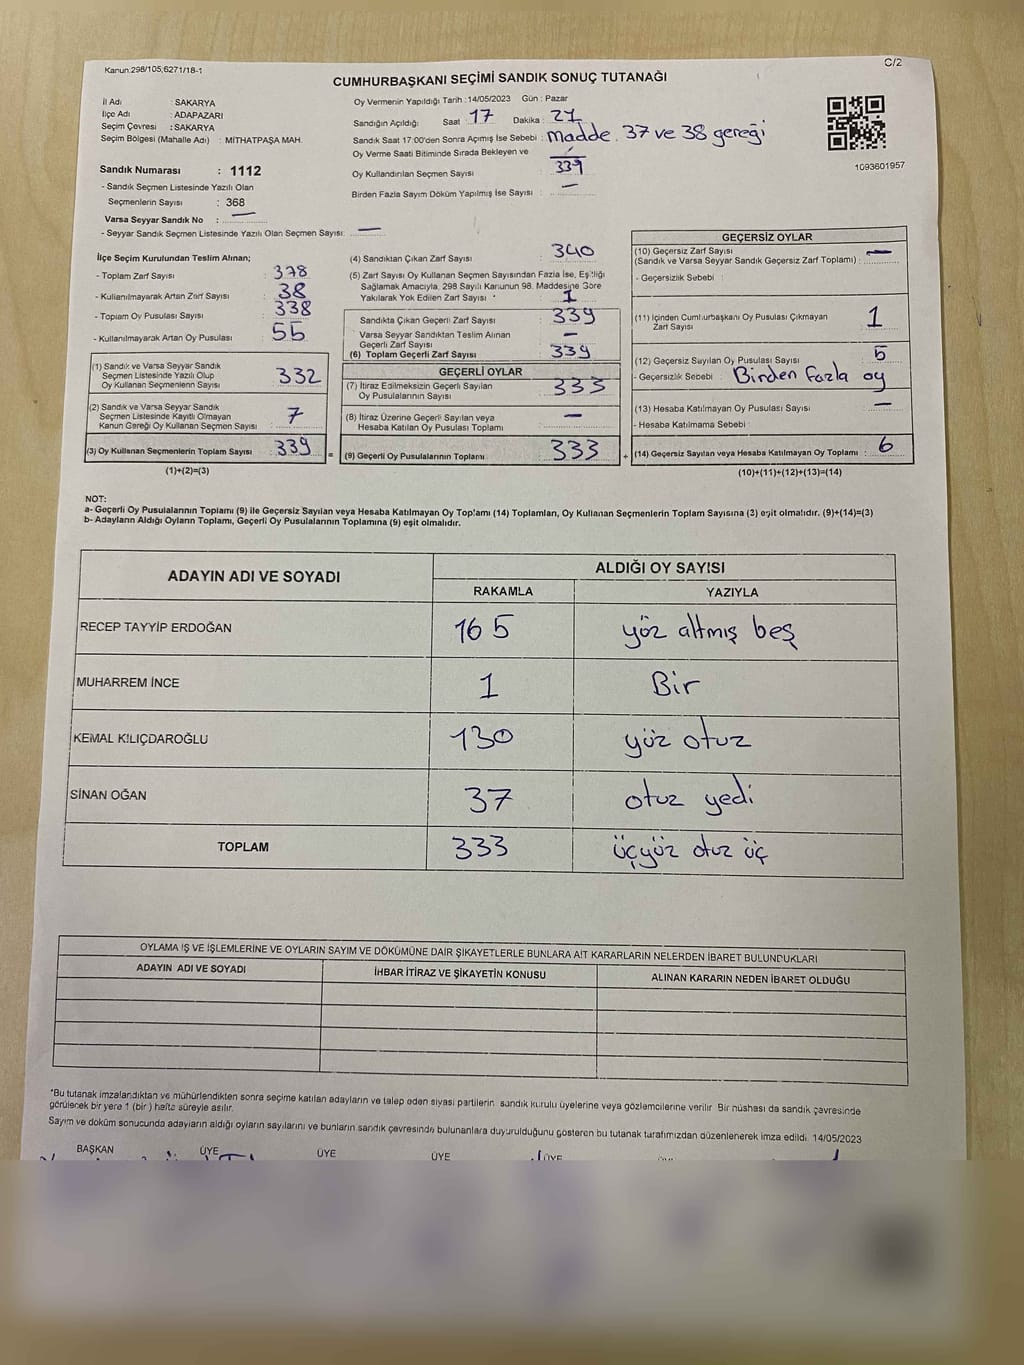 Kanun.298/105,6271/18-1
C/2
CUMHURBAŞKANI SEÇİMİ SANDIK SONUÇ TUTANAĞI
İl Adı : SAKARYA
İlçe Adı : ADAPAZARI
Seçim Çevresi : SAKARYA
Seçim Bölgesi (Mahalle Adı) : MİTHATPAŞA MAH.
Sandık Numarası : 1112
- Sandık Seçmen Listesinde Yazılı Olan
Seçmenlerin Sayısı : 368
Varsa Seyyar Sandık No : —
- Seyyar Sandık Seçmen Listesinde Yazılı Olan Seçmen Sayısı: —
Oy Vermenin Yapıldığı Tarih :14/05/2023 Gün : Pazar
Sandığın Açıldığı Saat 17 Dakika : 21
Sandık Saat 17:00'den Sonra Açılmış İse Sebebi : Madde. 37 ve 38 gereği
Oy Verme Saati Bitiminde Sırada Bekleyen ve
Oy Kullandırılan Seçmen Sayısı : 339
Birden Fazla Sayım Döküm Yapılmış İse Sayısı : —
1093601957
İlçe Seçim Kurulundan Teslim Alınan;
- Toplam Zarf Sayısı : 378
- Kullanılmayarak Artan Zarf Sayısı : 38
- Toplam Oy Pusulası Sayısı : 338
- Kullanılmayarak Artan Oy Pusulası : 55
(1) Sandık ve Varsa Seyyar Sandık
Seçmen Listesinde Yazılı Olup
Oy Kullanan Seçmenlerin Sayısı : 332
(2) Sandık ve Varsa Seyyar Sandık
Seçmen Listesinde Kayıtlı Olmayan
Kanun Gereği Oy Kullanan Seçmen Sayısı : 7
(3) Oy Kullanan Seçmenlerin Toplam Sayısı : 339 =
(1)+(2)=(3)
(4) Sandıktan Çıkan Zarf Sayısı : 340
(5) Zarf Sayısı Oy Kullanan Seçmen Sayısından Fazla İse, Eşitliği
Sağlamak Amacıyla, 298 Sayılı Kanunun 98. Maddesine Göre
Yakılarak Yok Edilen Zarf Sayısı * : 1
Sandıkta Çıkan Geçerli Zarf Sayısı : 339
Varsa Seyyar Sandıktan Teslim Alınan
Geçerli Zarf Sayısı : —
(6) Toplam Geçerli Zarf Sayısı : 339
GEÇERLİ OYLAR
(7) İtiraz Edilmeksizin Geçerli Sayılan
Oy Pusulalarının Sayısı : 333
(8) İtiraz Üzerine Geçerli Sayılan veya
Hesaba Katılan Oy Pusulası Toplamı : —
(9) Geçerli Oy Pusulalarının Toplamı : 333 +
GEÇERSİZ OYLAR
(10) Geçersiz Zarf Sayısı
(Sandık ve Varsa Seyyar Sandık Geçersiz Zarf Toplamı) : —
- Geçersizlik Sebebi :
(11) İçinden Cumhurbaşkanı Oy Pusulası Çıkmayan
Zarf Sayısı : 1
(12) Geçersiz Sayılan Oy Pusulası Sayısı : 5
- Geçersizlik Sebebi : Birden fazla oy
(13) Hesaba Katılmayan Oy Pusulası Sayısı : —
- Hesaba Katılmama Sebebi :
(14) Geçersiz Sayılan veya Hesaba Katılmayan Oy Toplamı : 6
(10)+(11)+(12)+(13)=(14)
NOT:
a- Geçerli Oy Pusulalarının Toplamı (9) ile Geçersiz Sayılan veya Hesaba Katılmayan Oy Toplamı (14) Toplamları, Oy Kullanan Seçmenlerin Toplam Sayısına (3) eşit olmalıdır. (9)+(14)=(3)
b- Adayların Aldığı Oyların Toplamı, Geçerli Oy Pusulalarının Toplamına (9) eşit olmalıdır.
ADAYIN ADI VE SOYADI
ALDIĞI OY SAYISI
RAKAMLA YAZIYLA
RECEP TAYYİP ERDOĞAN 165 yüz altmış beş
MUHARREM İNCE 1 Bir
KEMAL KILIÇDAROĞLU 130 yüz otuz
SİNAN OĞAN 37 otuz yedi
TOPLAM 333 üçyüz otuz üç
OYLAMA İŞ VE İŞLEMLERİNE VE OYLARIN SAYIM VE DÖKÜMÜNE DAİR ŞİKAYETLERLE BUNLARA AİT KARARLARIN NELERDEN İBARET BULUNDUKLARI
ADAYIN ADI VE SOYADI İHBAR İTİRAZ VE ŞİKAYETİN KONUSU ALINAN KARARIN NEDEN İBARET OLDUĞU
*Bu tutanak imzalandıktan ve mühürlendikten sonra seçime katılan adayların ve talep eden siyasi partilerin sandık kurulu üyelerine veya gözlemcilerine verilir. Bir nüshası da sandık çevresinde
görülecek bir yere 1 (bir ) hafta süreyle asılır.
Sayım ve döküm sonucunda adayların aldığı oyların sayılarını ve bunların sandık çevresinde bulunanlara duyurulduğunu gösteren bu tutanak tarafımızdan düzenlenerek imza edildi. 14/05/2023
BAŞKAN ÜYE ÜYE ÜYE ÜYE